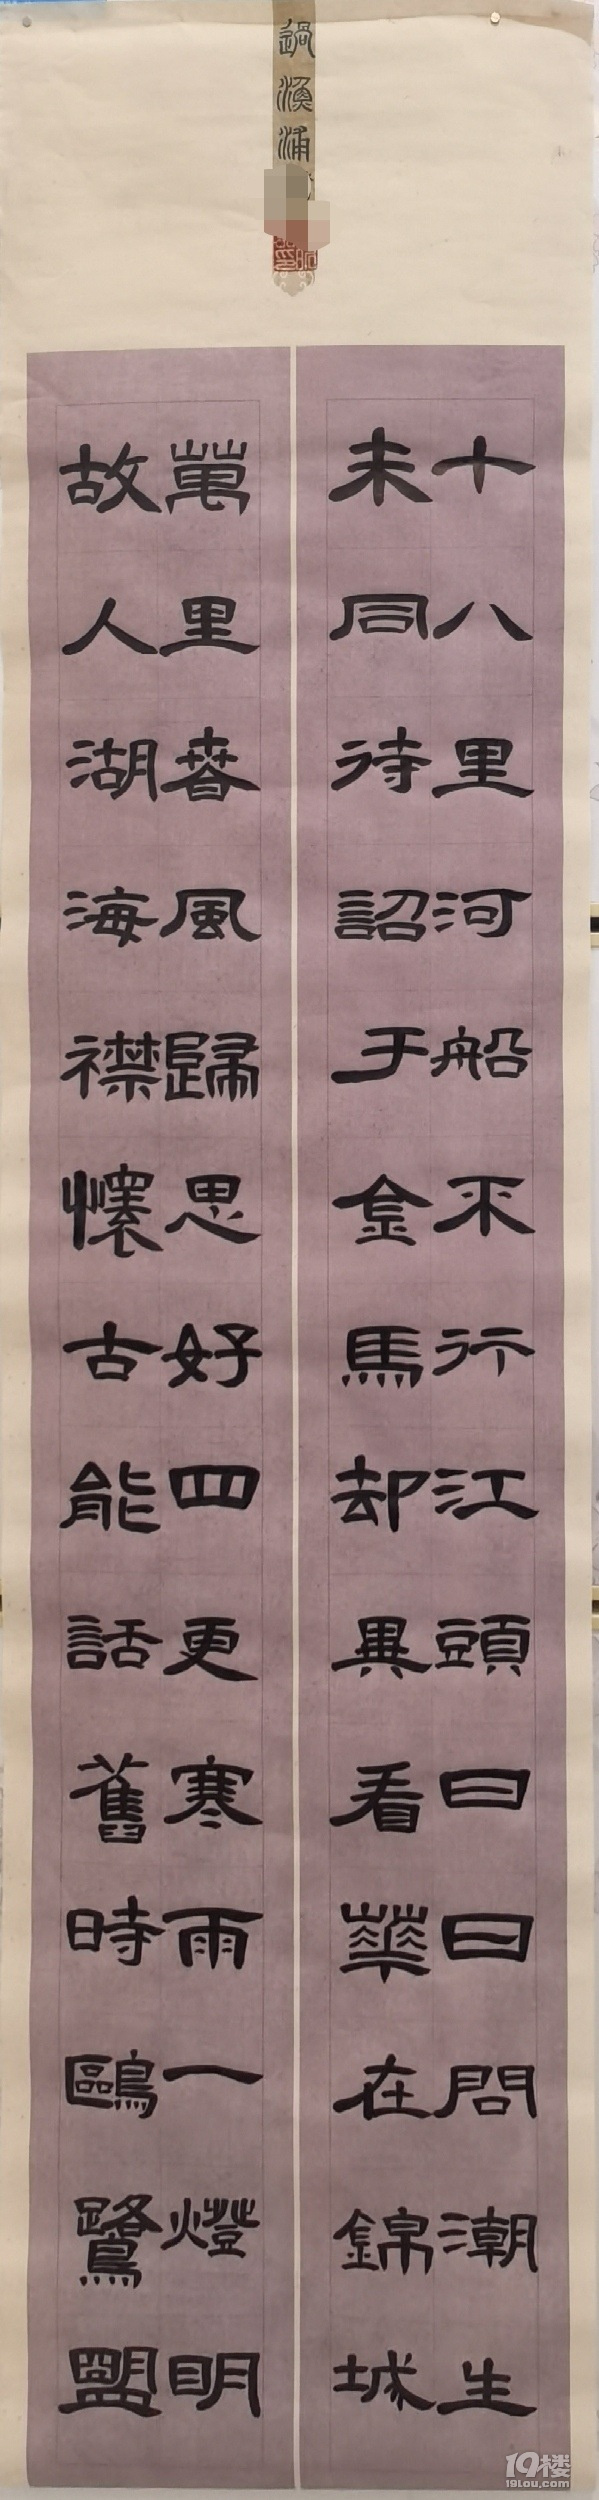 過漁浦
十八里河船不行江頭日日問潮生
未同待詔于金馬却異看華在錦城
萬里春風歸思好四更寒雨一燈明
故人湖海襟懷古能話舊時鷗鷺盟
19楼
19lou.com